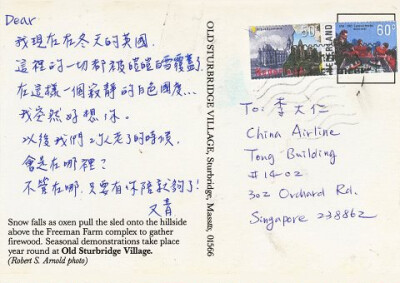 Dear
我現在在冬天的英國.
這裡的一切都被皚皚白雪覆蓋了
在這樣一個寂靜的白色國度...
我突然好想你。
以後我們2人老了的時候,
會是在哪裡?
不管在哪,只要有你陪就夠了!
又青
Snow falls as oxen pull the sled onto the hillside
above the Freeman Farm complex to gather
firewood. Seasonal demonstrations take place
year round at Old Sturbridge Village.
(Robert S. Arnold photo)
OLD STURBRIDGE VILLAGE, Sturbridge, Massau, 01566
50
NEDERLAND
60c
To: 李大仁
China Airline
Tong Building
#14-02
302 Orchard Rd.
Singapore 238862